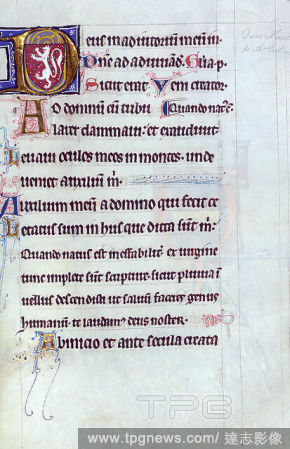 Deus in adiutoriu meu in
Dne ad adiuuad. Gla p.
Sicut erat. Veni creator.
Ad dominu cu tribu Quando natus
laret clamaui et exaudiuit
Leuaui oculos meos in montes. unde
ueniet auxiliu m.
Auxilium meu a domino qui fecit ce
Letatus sum in hiis que dicta sut m.
Quando natus est ineffabilit ex uirgine
tunc implete sut scripture. sicut pluuia i
uellus descendisti ut saluu faceres genus
humanu. te laudam deus noster.
Ab inicio et ante secula creata
TPG
www.tpgnews.com/ 達志影像